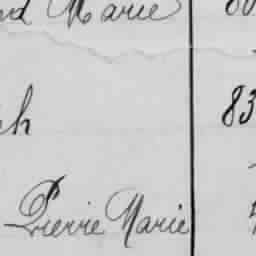 nd Marie 80
ph 83
Pierre Marie